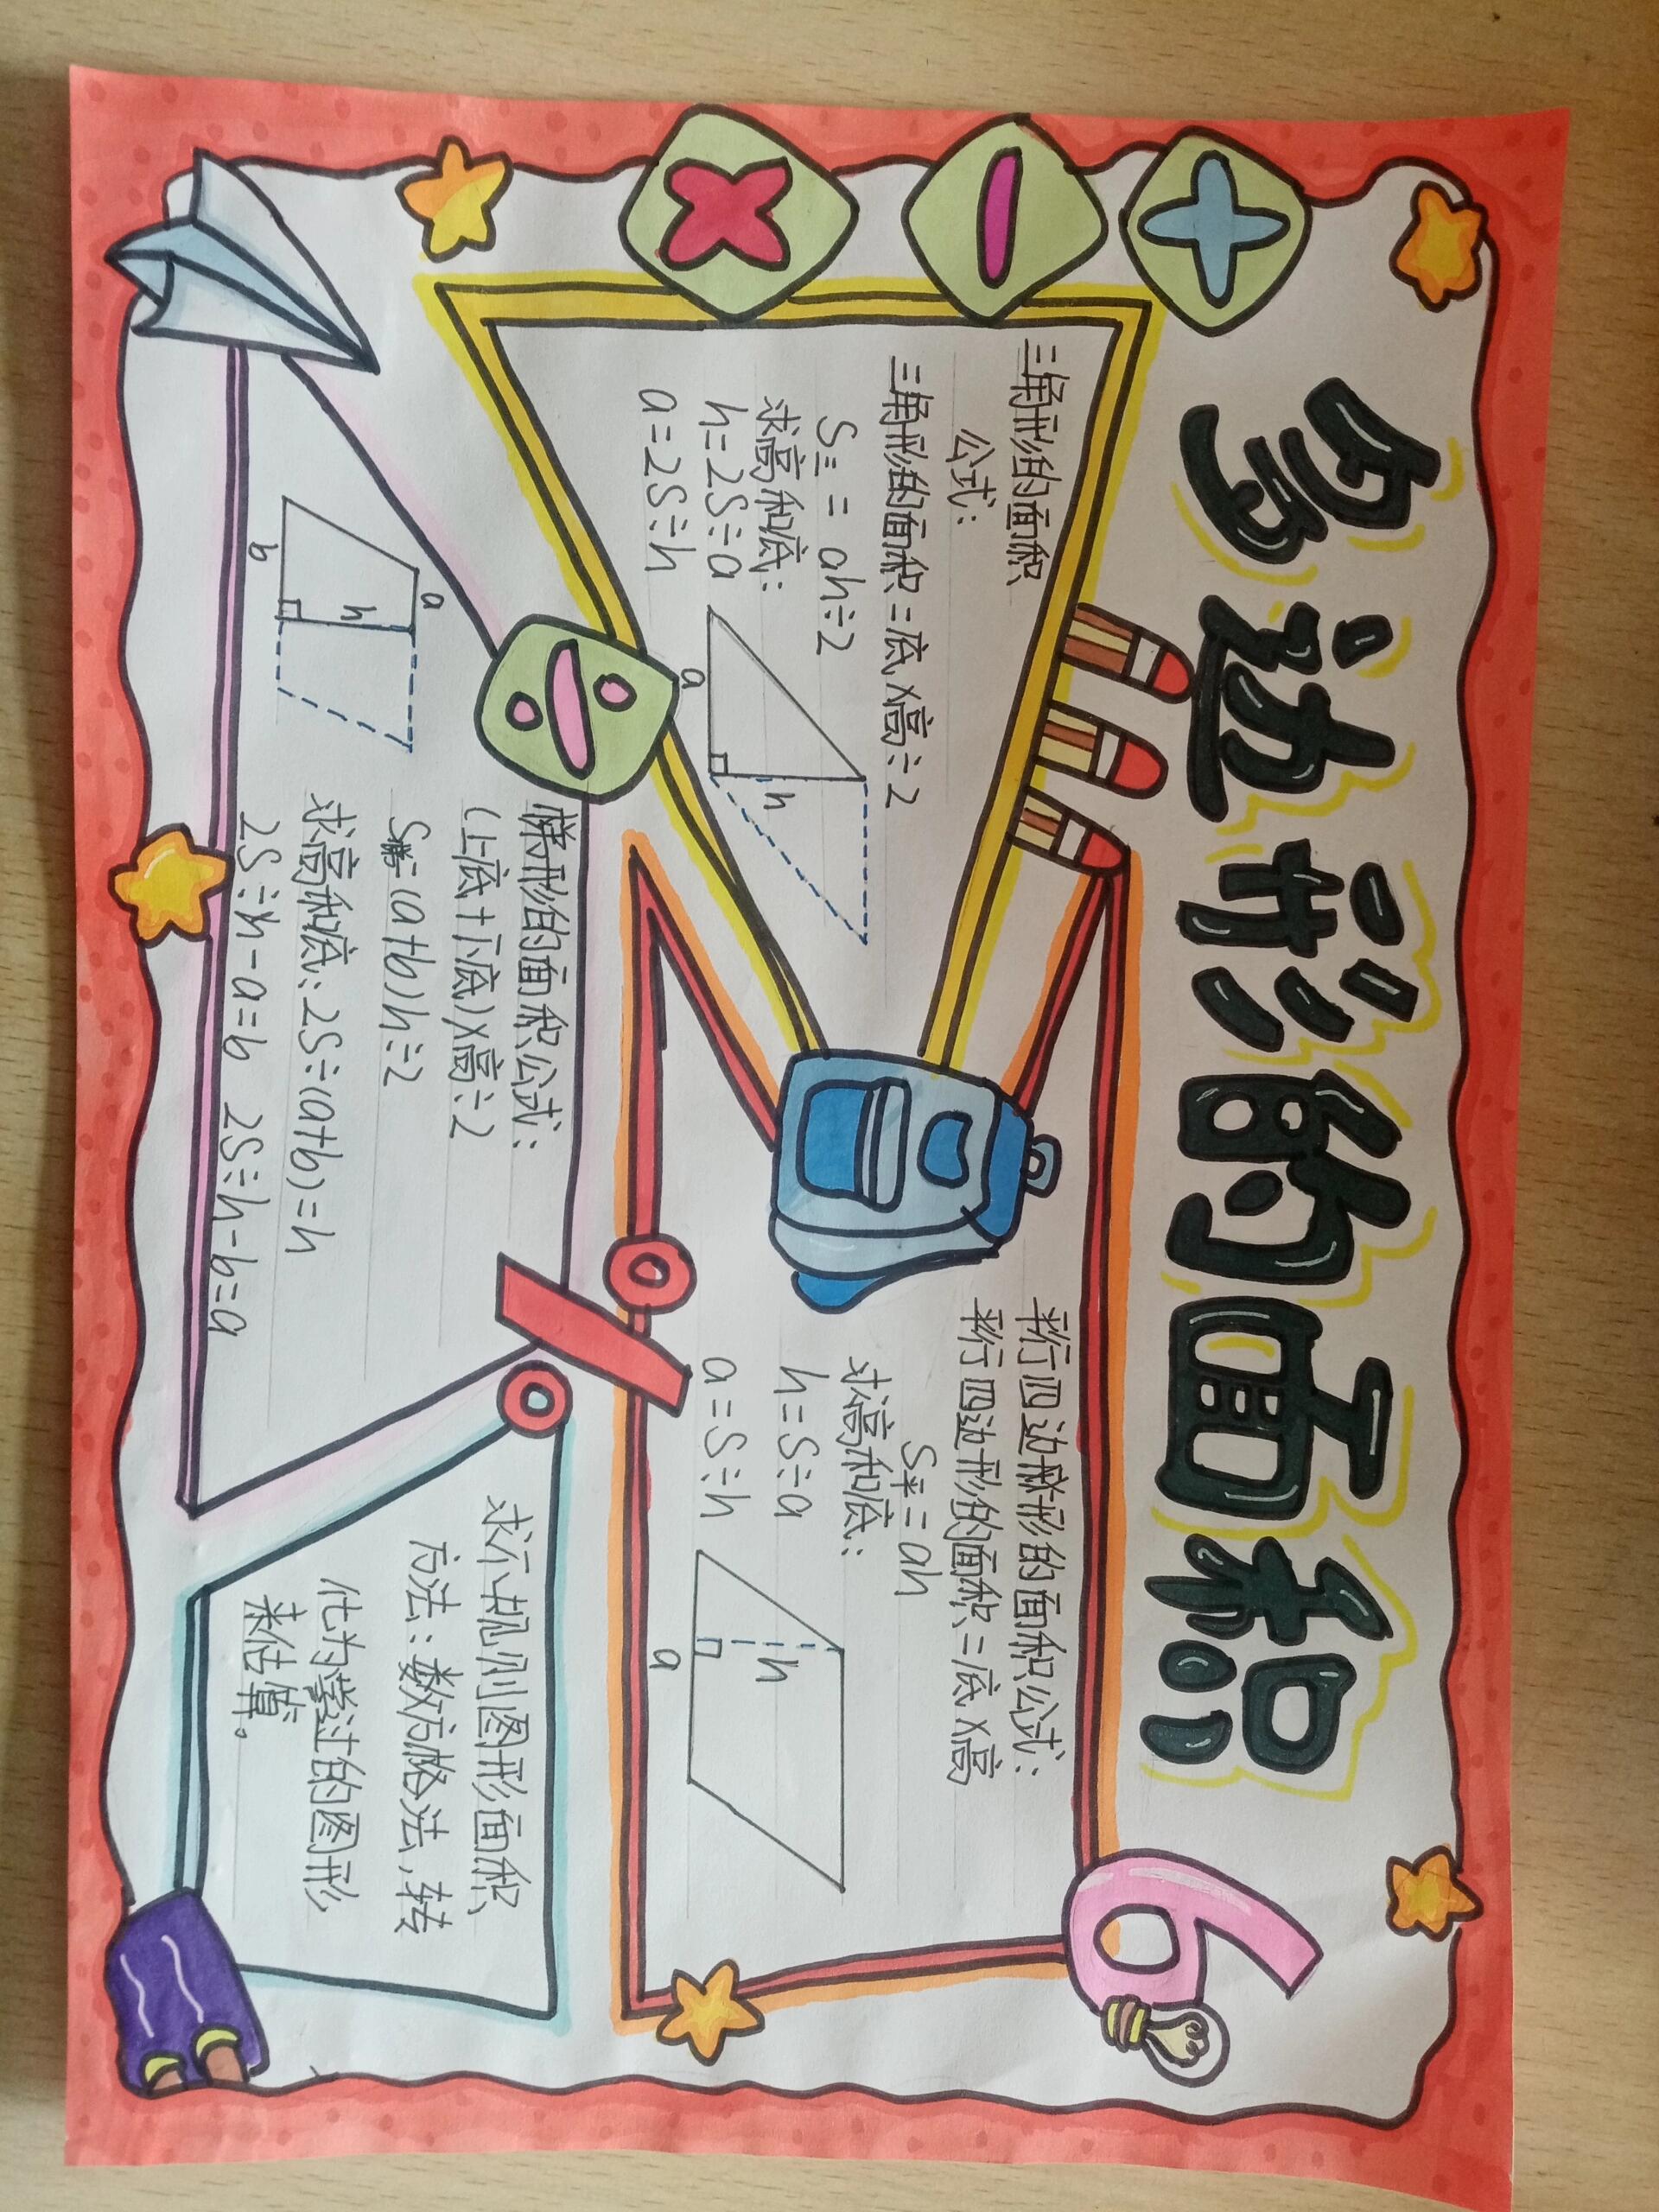 多边形的面积
三角形的面积
公式:
三角形的面积=底×高÷2
S三=ah÷2
求高和底:
h=2S÷a
a=2S÷h
a
h
平行四边形的面积公式:
平行四边形的面积=底×高
S平=ah
求高和底:
h=S÷a
a=S÷h
a
h
梯形的面积公式:
(上底+下底)×高÷2
S梯=(a+b)h÷2
求高和底:2S÷(a+b)=h
2S÷h-a=b 2S÷h-b=a
a
h
b
求不规则图形面积
方法:数方格法,转
化为学过的图形
来估算。
+
-
×
÷
%
6